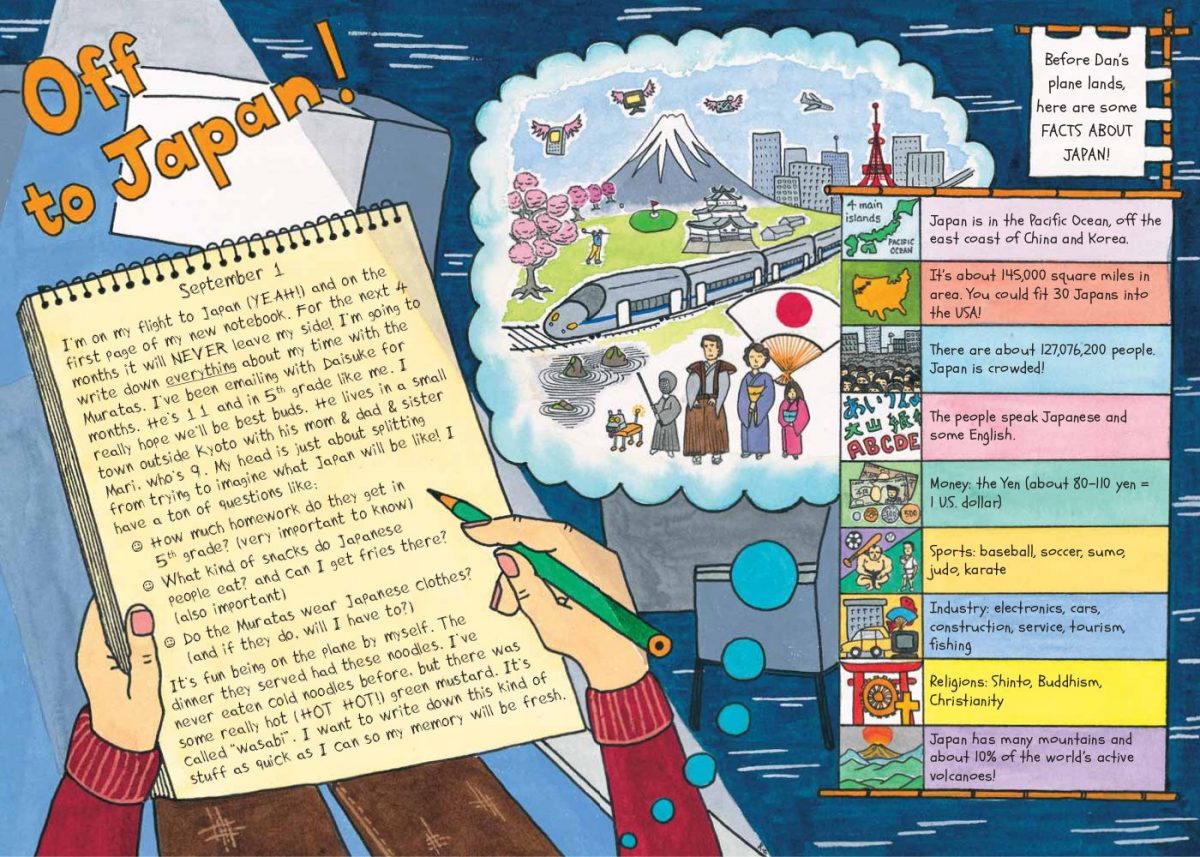 Off
to Japan!
September 1
I'm on my flight to Japan (YEAH!) and on the
first page of my new notebook. For the next 4
months it will NEVER leave my side! I'm going to
write down everything about my time with the
Muratas. I've been emailing with Daisuke for
months. He's 11 and in 5th grade like me. I
really hope we'll be best buds. He lives in a small
town outside Kyoto with his mom & dad & sister
Mari, who's 9. My head is just about splitting
from trying to imagine what Japan will be like! I
have a ton of questions like:
☺ How much homework do they get in
5th grade? (very important to know)
☺ What kind of snacks do Japanese
people eat? and can I get fries there?
(also important)
☺ Do the Muratas wear Japanese clothes?
(and if they do, will I have to?)
It's fun being on the plane by myself. The
dinner they served had these noodles. I've
never eaten cold noodles before, but there was
some really hot (HOT HOT!) green mustard. It's
called "wasabi". I want to write down this kind of
stuff as quick as I can so my memory will be fresh.
Before Dan's
plane lands,
here are some
FACTS ABOUT
JAPAN!
4 main
islands
PACIFIC
OCEAN
Japan is in the Pacific Ocean, off the
east coast of China and Korea.
It's about 145,000 square miles in
area. You could fit 30 Japans into
the USA!
There are about 127,076,200 people.
Japan is crowded!
あいうえの
大山
ABCDE
The people speak Japanese and
some English.
Money: the Yen (about 80–110 yen =
1 U.S. dollar)
500
Sports: baseball, soccer, sumo,
judo, karate
Industry: electronics, cars,
construction, service, tourism,
fishing
Religions: Shinto, Buddhism,
Christianity
Japan has many mountains and
about 10% of the world's active
volcanoes!